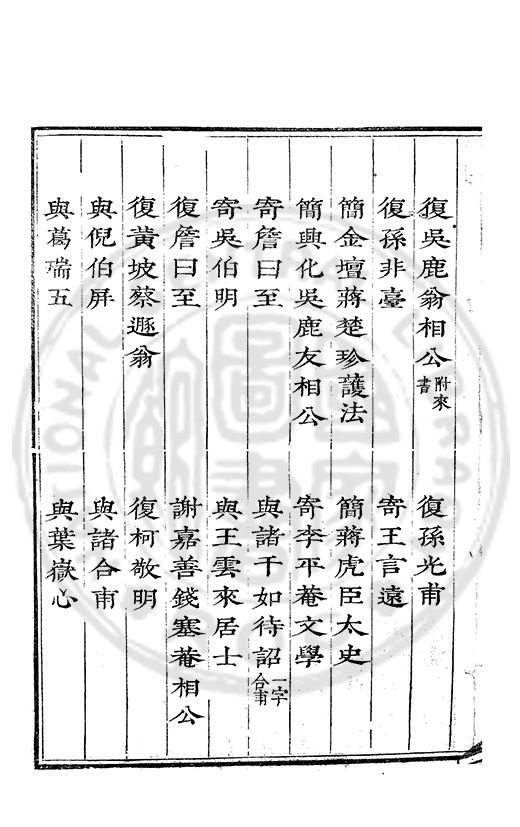 復吳鹿翁相公附來書　復孫光甫
復孫非臺　寄王言遠
簡金壇蔣楚珍護法　簡蔣虎臣太史
簡興化吳鹿友相公　寄李平菴文學
寄詹曰至　與諸千如待詔一字合甫
寄吳伯明　與王雲來居士
復詹曰至　謝嘉善錢塞菴相公
復黃坡蔡遯翁　復柯敬明
與倪伯屏　與諸合甫
與葛瑞五　與葉嶽心